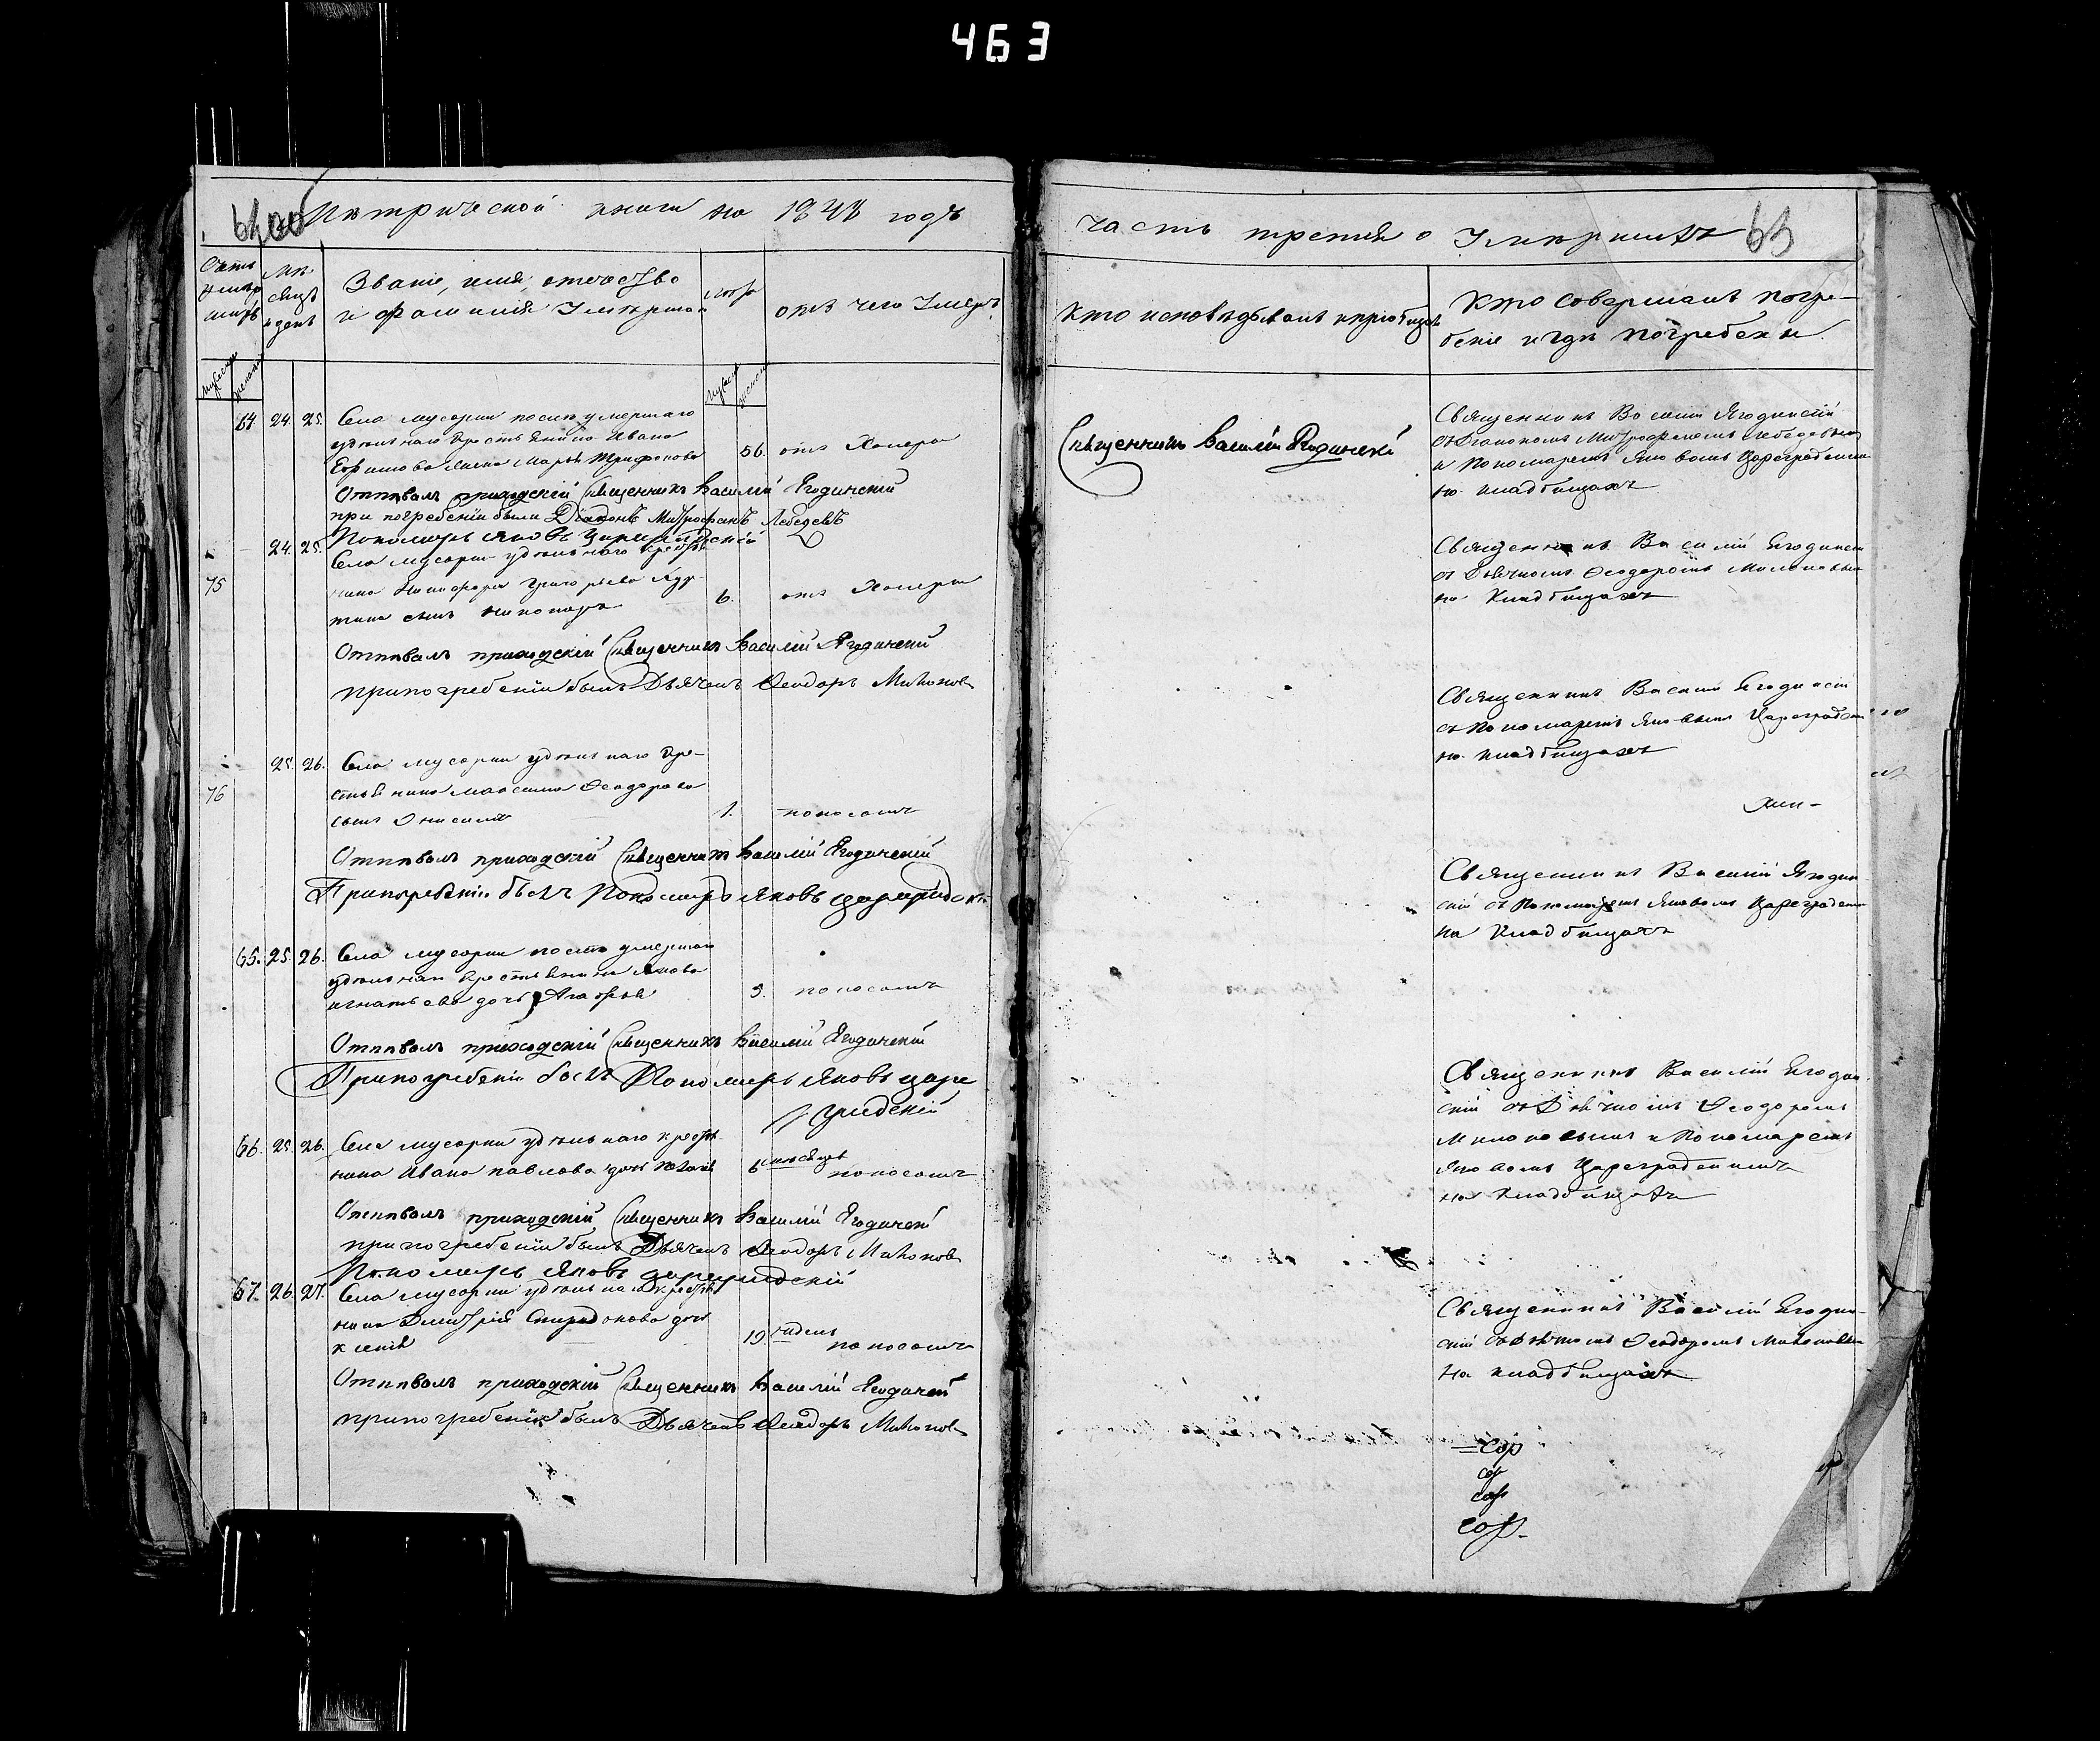 463
Метрической книги на 1848 годъ
часть третия о Умершихъ 63
Счетъ умершихъ
Мѣсяцъ и день
Званіе, имя, отчество
и фамилія Умершаго
лѣта
отъ чего Умеръ
Кто исповѣдывалъ и приобщалъ
Кто совершалъ погре-
беніе и гдѣ погребены.
мужеска женска
мужеска женска
64. 24. 25. Села Мусорки послѣ умершаго
удѣльнаго крестьянина Ивана
Ефимова жена Марья Трифонова 56. отъ Холеры
Отпѣвалъ приходскій Священникъ Василій Ягодинский
при погребеніи были Діаконъ Митрофанъ Лебедевъ
Пономарь Яковъ Цареградскій
Священникъ Василій Ягодинскій
Священникъ Василій Ягодинскій
съ Діакономъ Митрофаномъ Лебедевымъ
и Пономаремъ Яковомъ Цареградскимъ
на кладбищахъ
75 24. 25. Села Мусорки удѣльнаго крестья-
нина Никифора Григорьева
сынъ Никаноръ 6. отъ Холеры
Отпѣвалъ приходскій Священникъ Василій Ягодинскій
при погребеніи былъ Дьячекъ Феодоръ
Священникъ Василій Ягодинскій
съ Дьячкомъ Феодоромъ
на Кладбищахъ
76 25. 26. Села Мусорки удѣльнаго кре-
стьянина Максима Феодорова
сынъ Онисимъ 1. поносомъ
Отпѣвалъ приходскій Священникъ Василій Ягодинскій
При погребеніи былъ Пономарь Яковъ Цареградскій
Священникъ Василій Ягодинскій
съ Пономаремъ Яковомъ Цареградскимъ
на кладбищахъ
65. 25. 26. Села Мусорки послѣ умершаго
удѣльнаго крестьянина Якова
Игнатьева дочь Агафья 9. поносомъ
Отпѣвалъ приходскій Священникъ Василій Ягодинскій
При погребеніи былъ Пономарь Яковъ Царе
градскій
Священникъ Василій Ягодин-
скій съ Пономаремъ Яковомъ Цареградскимъ
на Кладбищахъ
66. 25. 26. Села Мусорки удѣльнаго крестья-
нина Ивана Павлова дочь 6 мѣсяцевъ поносомъ
Отпѣвалъ приходскій Священникъ Василій Ягодинскій
при погребеніи былъ Дьячекъ Феодоръ
Пономарь Яковъ Цареградскій
Священникъ Василій Ягодин-
скій съ Дьячкомъ Феодоромъ
и Пономаремъ
Яковомъ Цареградскимъ
на Кладбищахъ
67. 26. 27. Села Мусорки удѣльнаго крестья-
нина Димитрія Спиридонова дочь
Ксенія 19. недель поносомъ
Отпѣвалъ приходскій Священникъ Василій Ягодинскій
при погребеніи былъ Дьячекъ Феодоръ
Священникъ Василій Ягодин-
скій съ Дьячкомъ Феодоромъ
на кладбищахъ